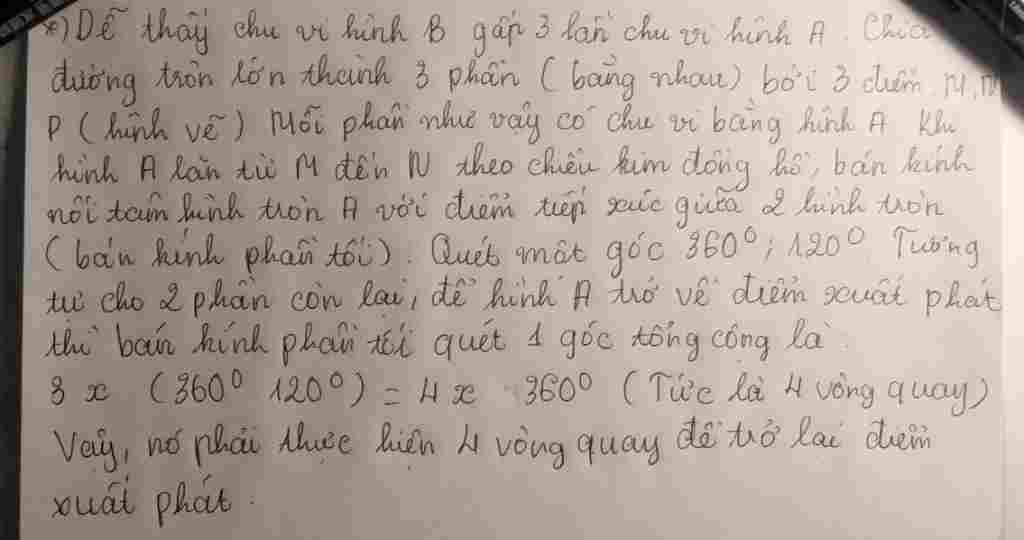 *) Dễ thấy chu vi hình B gấp 3 lần chu vi hình A. Chia
đường tròn lớn thành 3 phần (bằng nhau) bởi 3 điểm M, N
P (hình vẽ) Mỗi phần như vậy có chu vi bằng hình A Khi
hình A lăn từ M đến N theo chiều kim đồng hồ, bán kính
nối tâm hình tròn A với điểm tiếp xúc giữa 2 hình tròn
(bán kính phần tối). Quét một góc 360°; 120° Tương
tự cho 2 phần còn lại, để hình A trở về điểm xuất phát
thì bán kính phần tối quét 1 góc tổng cộng là
3 x (360° 120°) = 4 x 360° (Tức là 4 vòng quay)
Vậy, nó phải thực hiện 4 vòng quay để trở lại điểm
xuất phát.